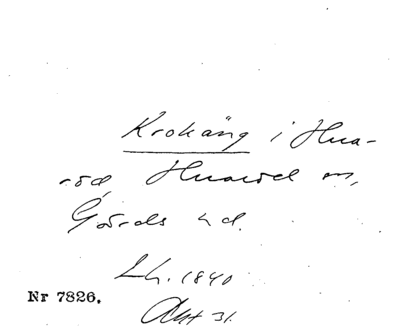 Krokäng i Hua-
röd, Huaröd sn,
Gärds hd.
Lh. 1840
Akt 31.
Nr 7826.